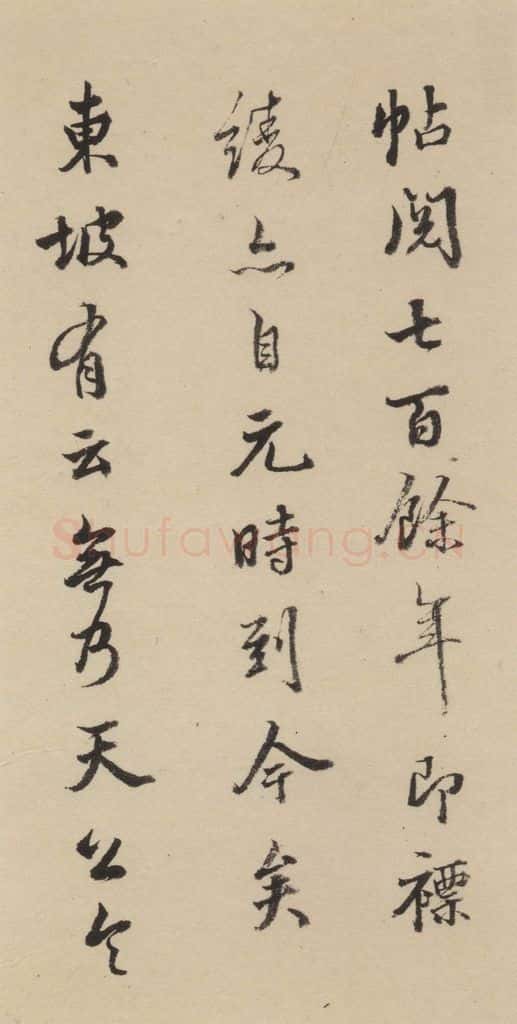 帖閱七百餘年即褾
綾亦自元時到今矣
東坡有云無乃天公令
Shufawang.CN